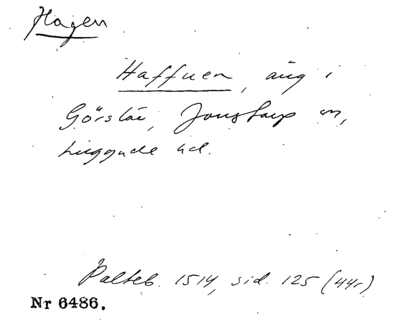 Hagen
Haffuen, äng i
Görslöv, Jonstorp sn,
Luggude hd.
Palteb. 1514, sid. 125 (44r)
Nr 6486.